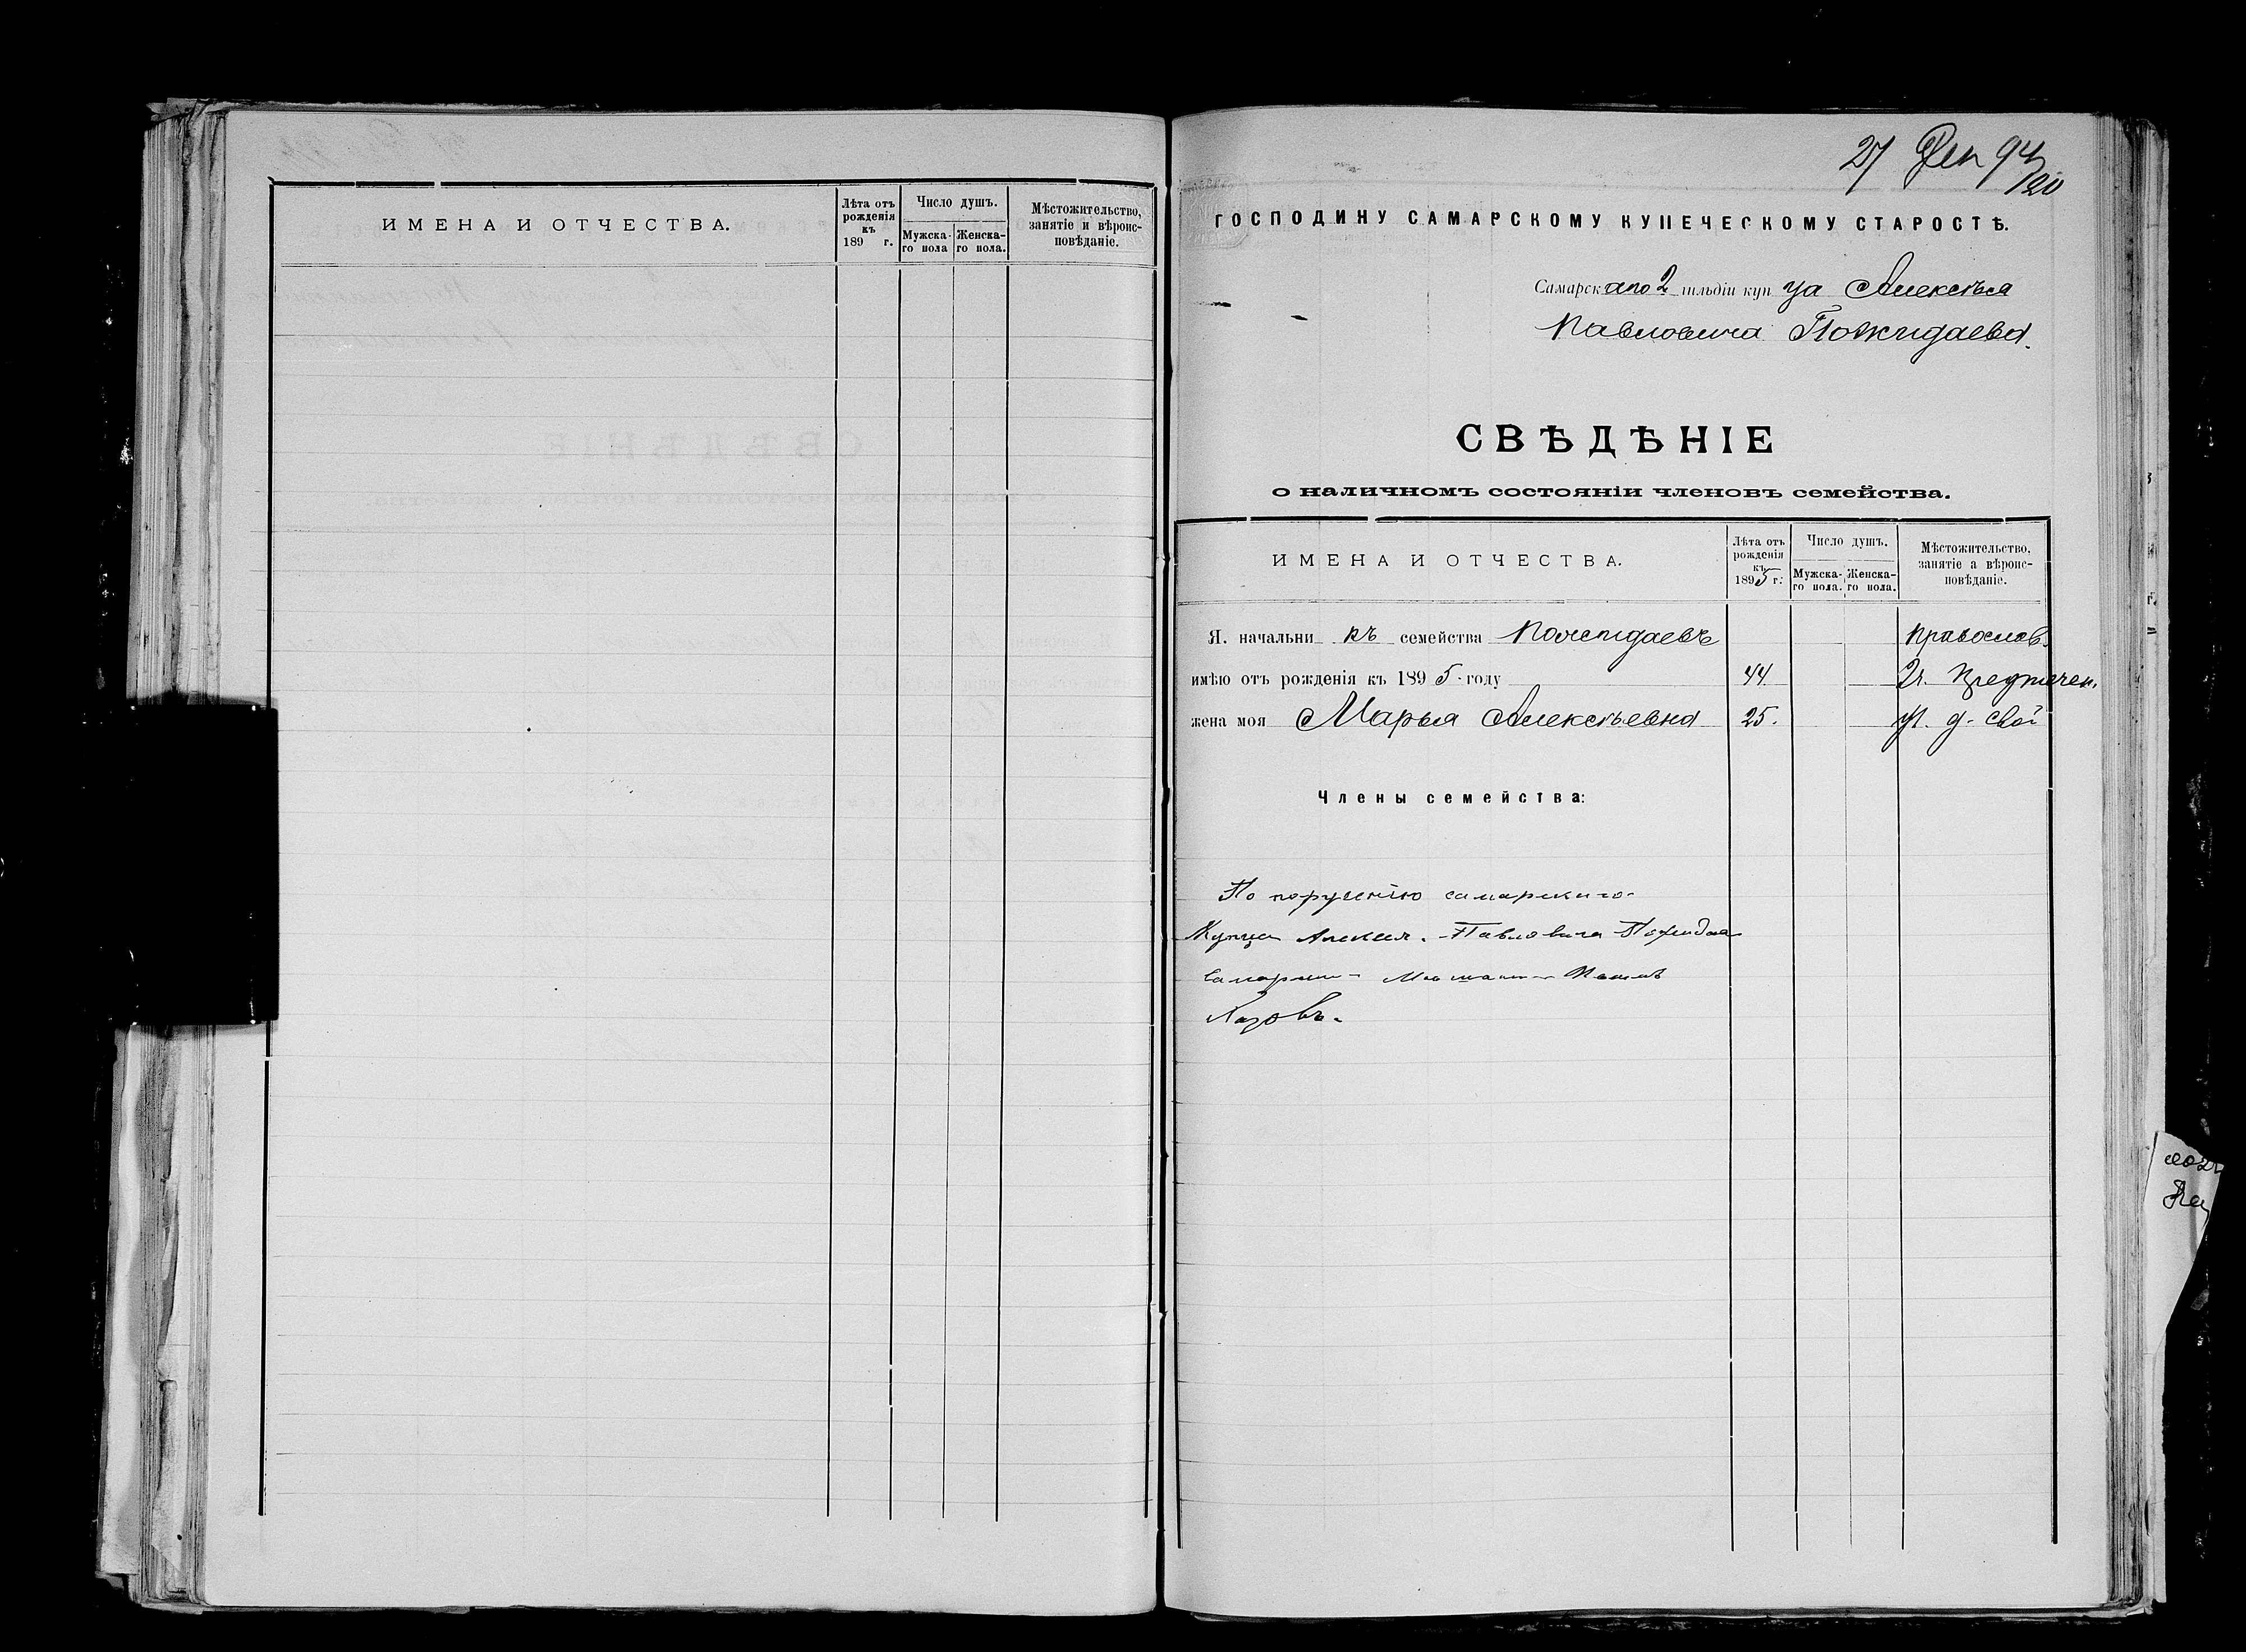 ИМЕНА И ОТЧЕСТВА.
Лѣта отъ рожденія къ 189 г.
Число душъ.
Мужска-го пола
Женска-го пола.
Мѣстожительство, занятіе и вѣроис-повѣданіе.
27 Дек 94
120
ГОСПОДИНУ САМАРСКОМУ КУПЕЧЕСКОМУ СТАРОСТѢ.
Самарскаго 2 гильдіи купца Алексѣя
Павловича Пожидаева.
СВѢДѢНІЕ
о наличномъ состояніи членовъ семейства.
ИМЕНА И ОТЧЕСТВА.
Лѣта отъ рожденія къ 1895 г.
Число душъ.
Мужска-го пола.
Женска-го пола.
Мѣстожительство, занятіе а вѣроис-повѣданіе.
Я. начальникъ семейства Пожидаевъ Православ.
имѣю отъ рожденія къ 1895. году 44. 2ч. Предтечен.
жена моя Марья Алексѣевна 25. ул. д. свой
Члены семейства:
По порученію самарскаго
Купца Алексея Павловича Пожидае